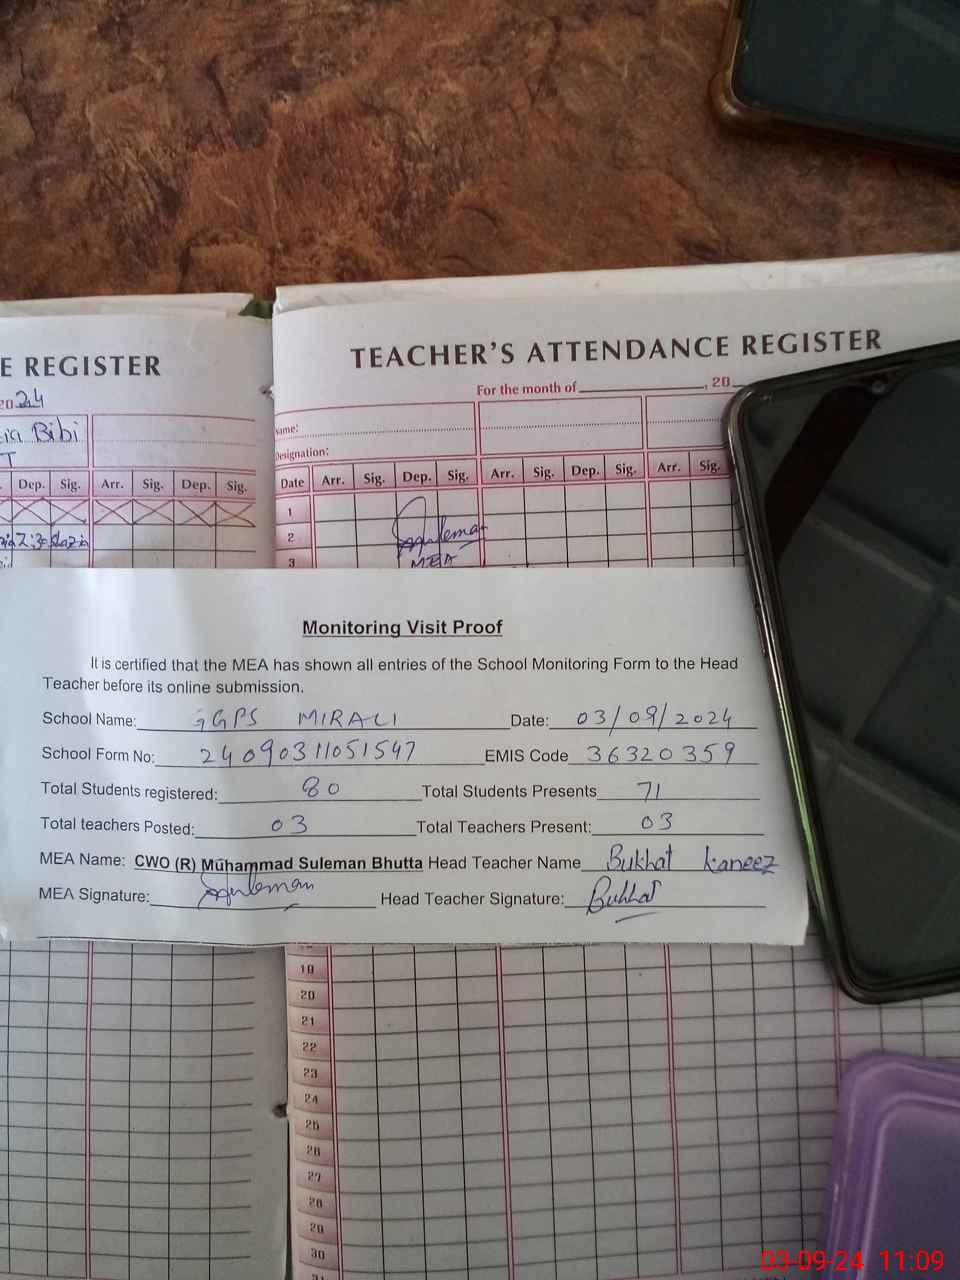 E REGISTER
2024
Bibi
T
Dep. Sig. Arr. Sig. Dep. Sig.
TEACHER'S ATTENDANCE REGISTER
For the month of , 20
ame:
Designation:
Date Arr. Sig. Dep. Sig. Arr. Sig. Dep. Sig. Arr. Sig.
1
2 Suleman
3 MEA
Monitoring Visit Proof
It is certified that the MEA has shown all entries of the School Monitoring Form to the Head
Teacher before its online submission.
School Name: GGPS MIRALI Date: 03/09/2024
School Form No: 24090311051547 EMIS Code 36320359
Total Students registered: 80 Total Students Presents 71
Total teachers Posted: 03 Total Teachers Present: 03
MEA Name: CWO (R) Muhammad Suleman Bhutta Head Teacher Name Bukhat kaneez
MEA Signature: Suleman Head Teacher Signature: Bukhat
19
20
21
22
23
24
25
26
27
28
29
30
31
03-09-24 11:09